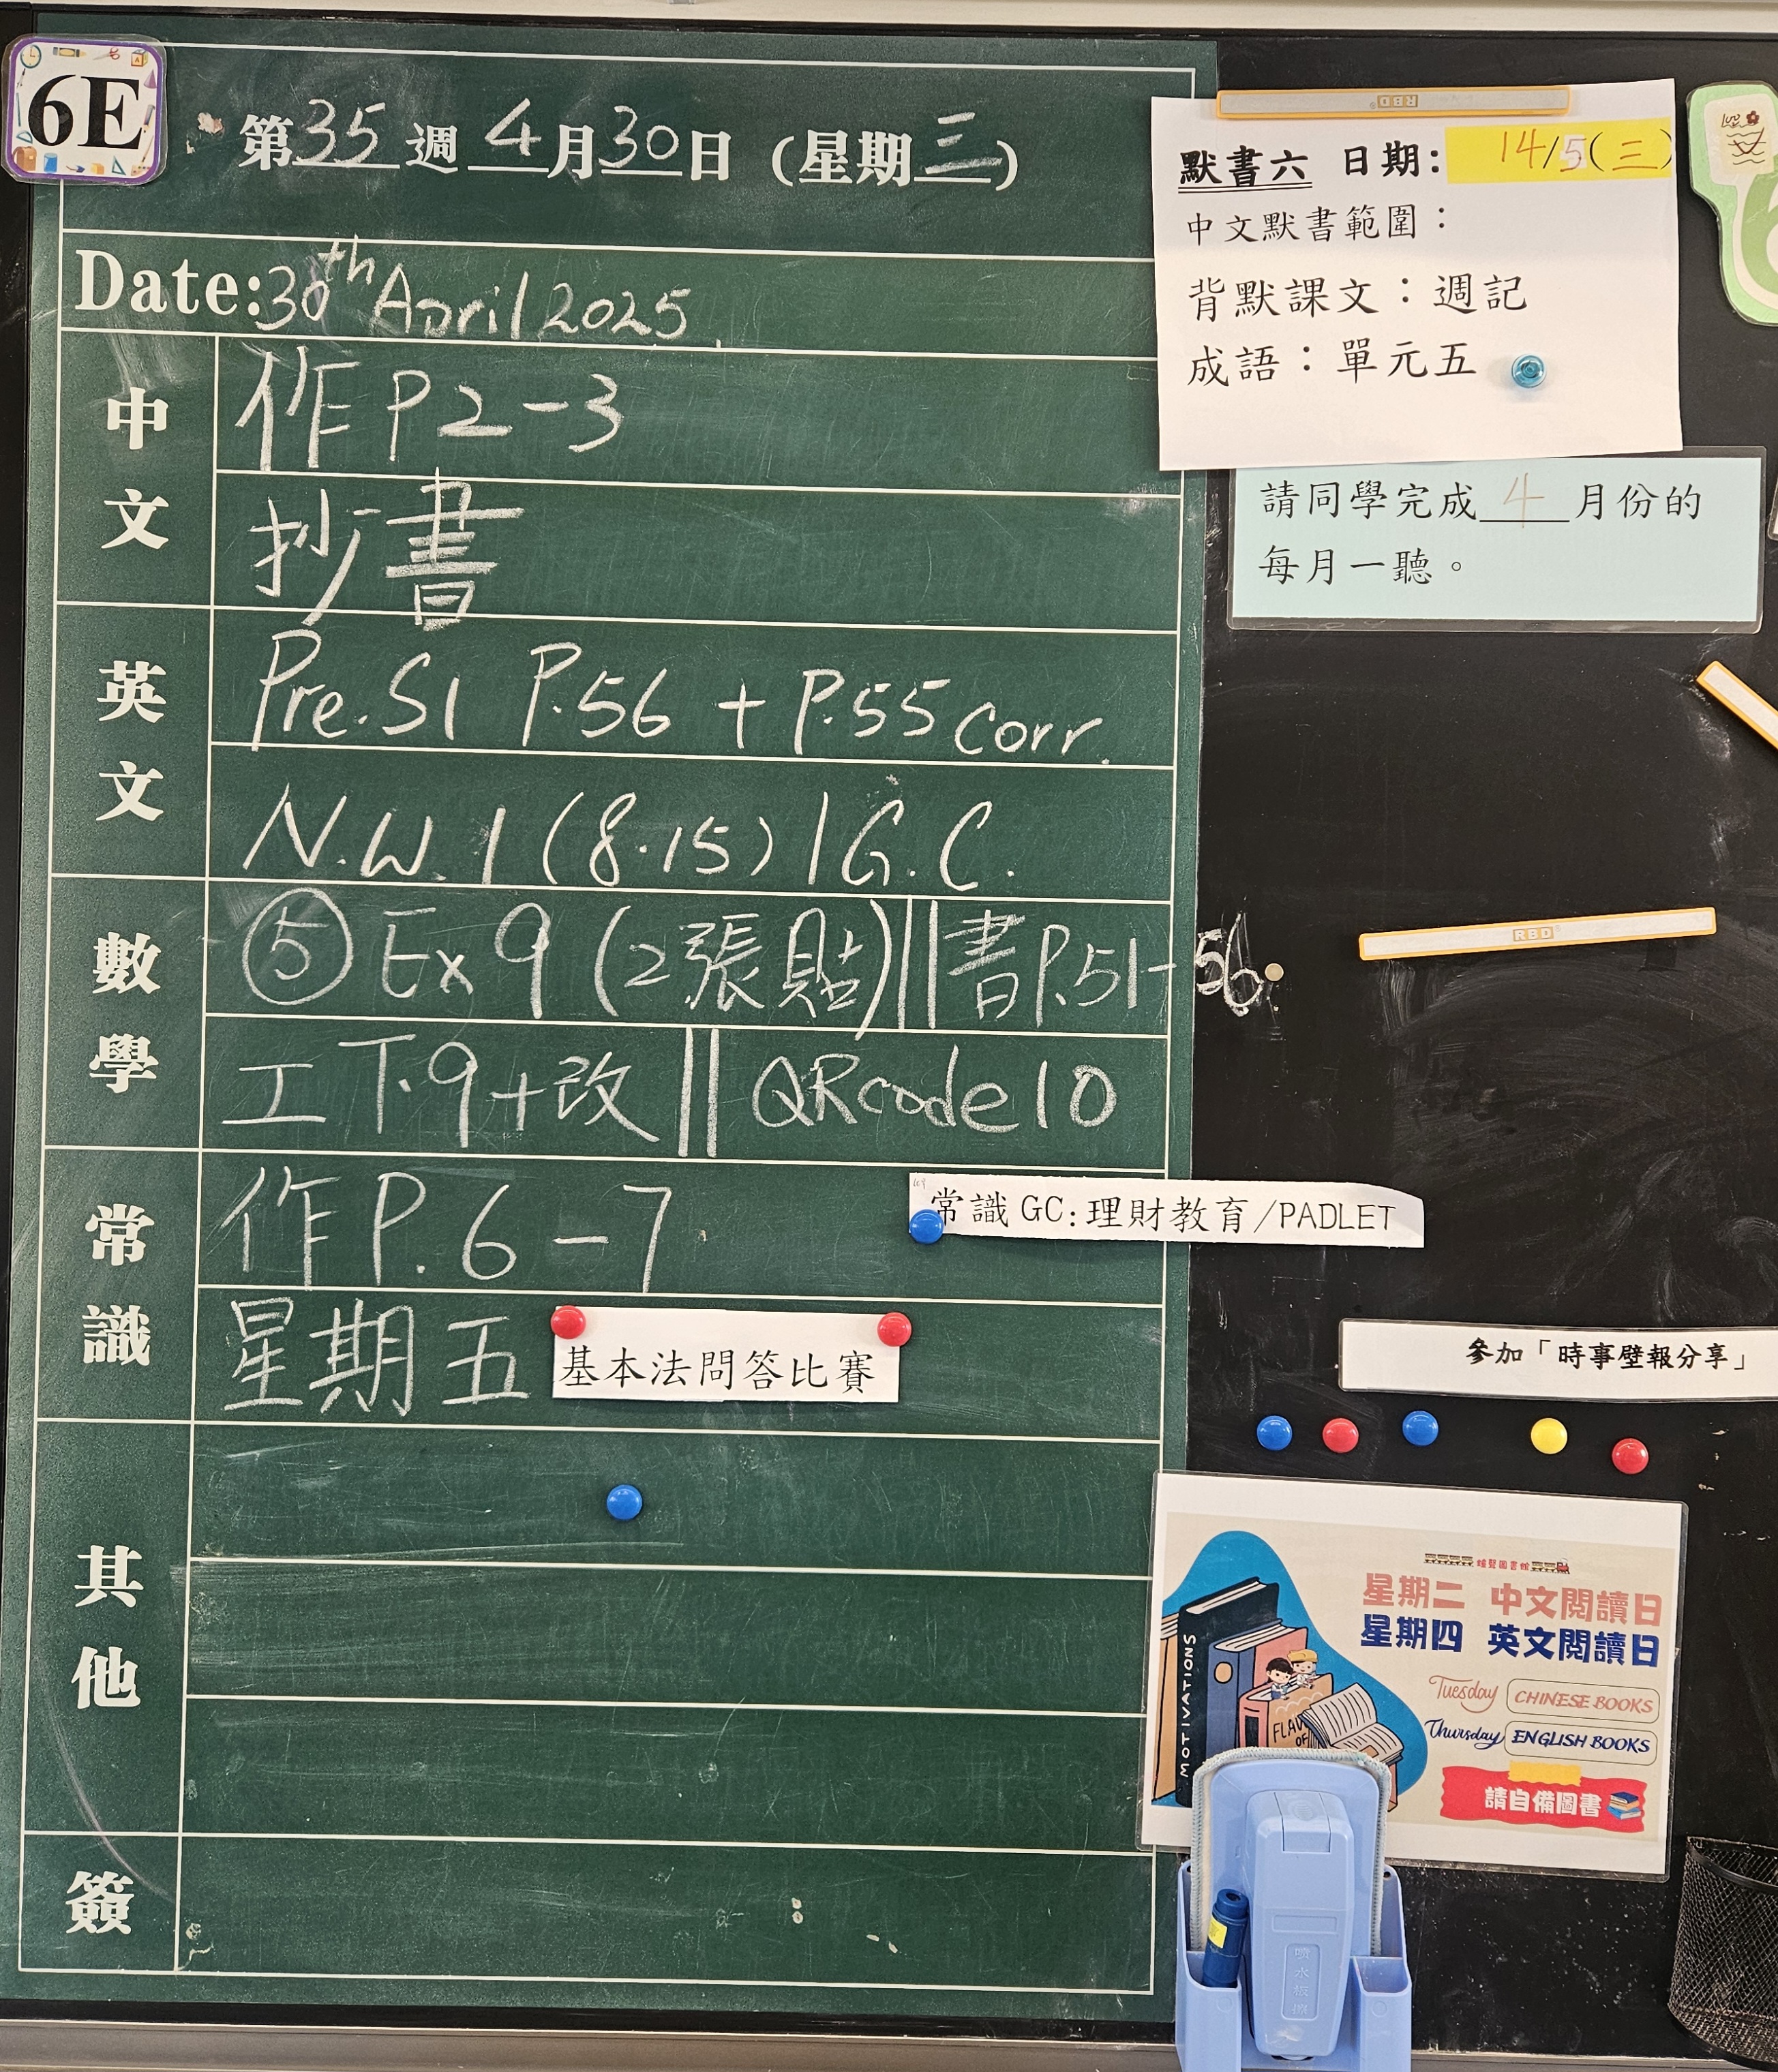 6E
第35週 4月30日 (星期三)
Date:30th April 2025
中文
作P2-3
抄書
英文
Pre.S1 P.56 + P.55 corr.
N.W. 1 (8.15) / G.C.
數學
⑤ Ex 9 (2張貼) || 書P.51-56
工下.9+改 || QRcode10
常識
作P.6-7
常識 GC:理財教育/PADLET
星期五
基本法問答比賽
其他
簽
RBD
默書六 日期: 14/5(三)
中文默書範圍：
背默課文：週記
成語：單元五
請同學完成 4 月份的
每月一聽。
RBD
參加「時事壁報分享」
星期二 中文閱讀日
星期四 英文閱讀日
Tuesday CHINESE BOOKS
Thursday ENGLISH BOOKS
請自備圖書
MOTIVATIONS
OF